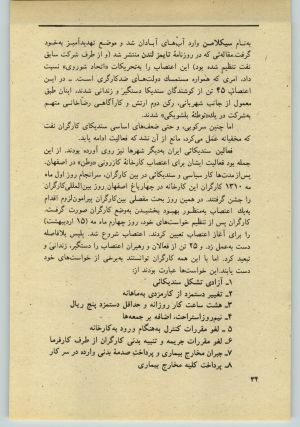 بەنام سیکلامن وارد آبهای آبادان شد و موضع تهدیدآمیز به‌خود
گرفت.مقاله‌ئی که در روزنامهٔ تایمز لندن منتشر شد (و از طرف شرکت سابق
نفت تنظیم شده بود) این اعتصاب را به‌تحریکات «اتحاد شوروی» نسبت
داد، امری که همواره مستمسک دولت‌های ضدکارگری است. ـ در این
اعتصاب ۴۵ تن از کوشندگان سندیکا دستگیر و زندانی شدند، اینان طبق
معمول از جانب شهربانی، رکن دوم ارتش و کارآگاهی رضاخانی متهم
به‌شرکت در یک«توطئهٔ بلشویکی» شدند.
اما چنین سرکوبی، و حتی ضعف‌های اساسی سندیکای کارگران نفت
که مخفیانه عمل می‌کرد، مانع از آن نشد که فعالیت ادامه یابد.
فعالین سندیکائی ایران به‌دیگر شهرها نیز روی آورده بودند. از این
جمله بود فعالیت ایشان برای اعتصاب کارخانهٔ کازرونی «وطن» در اصفهان.
پس‌ازمدت‌ها کار سیاسی و سندیکائی در بین کارگران، سرانجام روز اول ماه
مه ۱۳۱۰ کارگران این کارخانه در چهارباغ اصفهان روز بین‌المللی‌کارگران
را جشن گرفتند. در همین روز بحث مفصلی بین‌کارگران پیرامون‌لزوم اقدام
به‌یک اعتصاب به‌منظور بهبود بخشیدن به‌وضع کارگران صورت گرفت.
کارگران پس از تنظیم خواست‌های خود، روز چهارم ماه مه (۱۵ اردیبهشت)
را برای آغاز اعتصاب تعیین کردند. اعتصاب شروع شد. پلیس بلافاصله
دست به‌عمل زد، و ۲۵ تن از فعالان و رهبران اعتصاب را دستگیر، زندانی و
تبعید کرد. اما با این همه کارگران توانستند به‌برخی از خواست‌های خود
دست یابند.این خواست‌ها عبارت بودند از:
۱ـ آزادی تشکل سندیکائی
۲ـ تغییر دستمزد از کارمزدی به‌ماهانه
۳ـ هشت ساعت کار روزانه و حداقل دستمزد پنج ریال
۴ـ نیم‌روزاستراحت، اضافه بر جمعه‌ها
۵ـ لغو مقررات کنترل به‌هنگام ورود به‌کارخانه
۶ـ لغو مقررات جریمه و تنبیه بدنی کارگران از طرف کارفرما
۷ـ جبران مخارج بیماری و پرداخت صدمهٔ بدنی وارده در سر کار
۸ـ پرداخت کلیه مخارج بیماری
۳۴